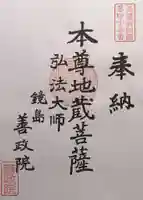 奉納
本尊地蔵菩薩
弘法大師
鏡島
善政院